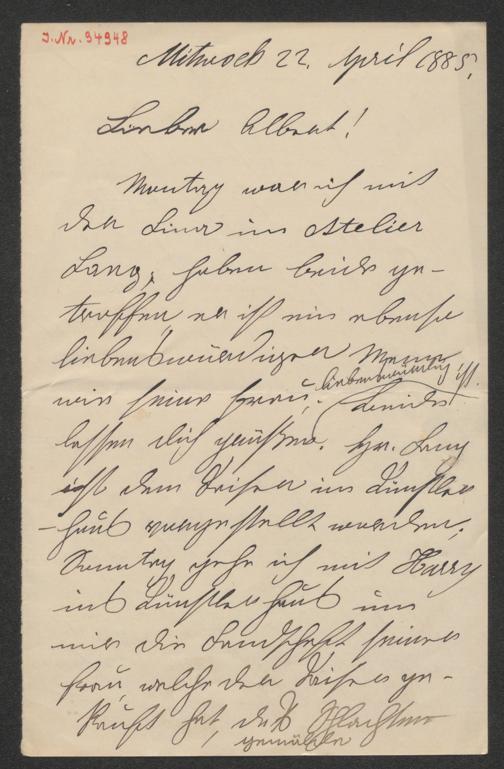 J. Nr. 34948
Mittwoch 22. April 1885.
Lieber Albert!
Montag war ich mit
der Lina im Atelier
Lang, haben beide ge-
troffen, er ist ein ebenso
liebenswürdiger Mann
wie seine Frau, liebenswürdig ist.
Beide
lassen dich grüßen. Hr. Lang
ist dem Kaiser im Künstler
-haus vorgestellt worden.
Sonntag gehe ich mit Harry
ins Künstlerhaus um
mir die Landschaft seiner
Frau, welche der Kaiser ge-
kauft hat, das